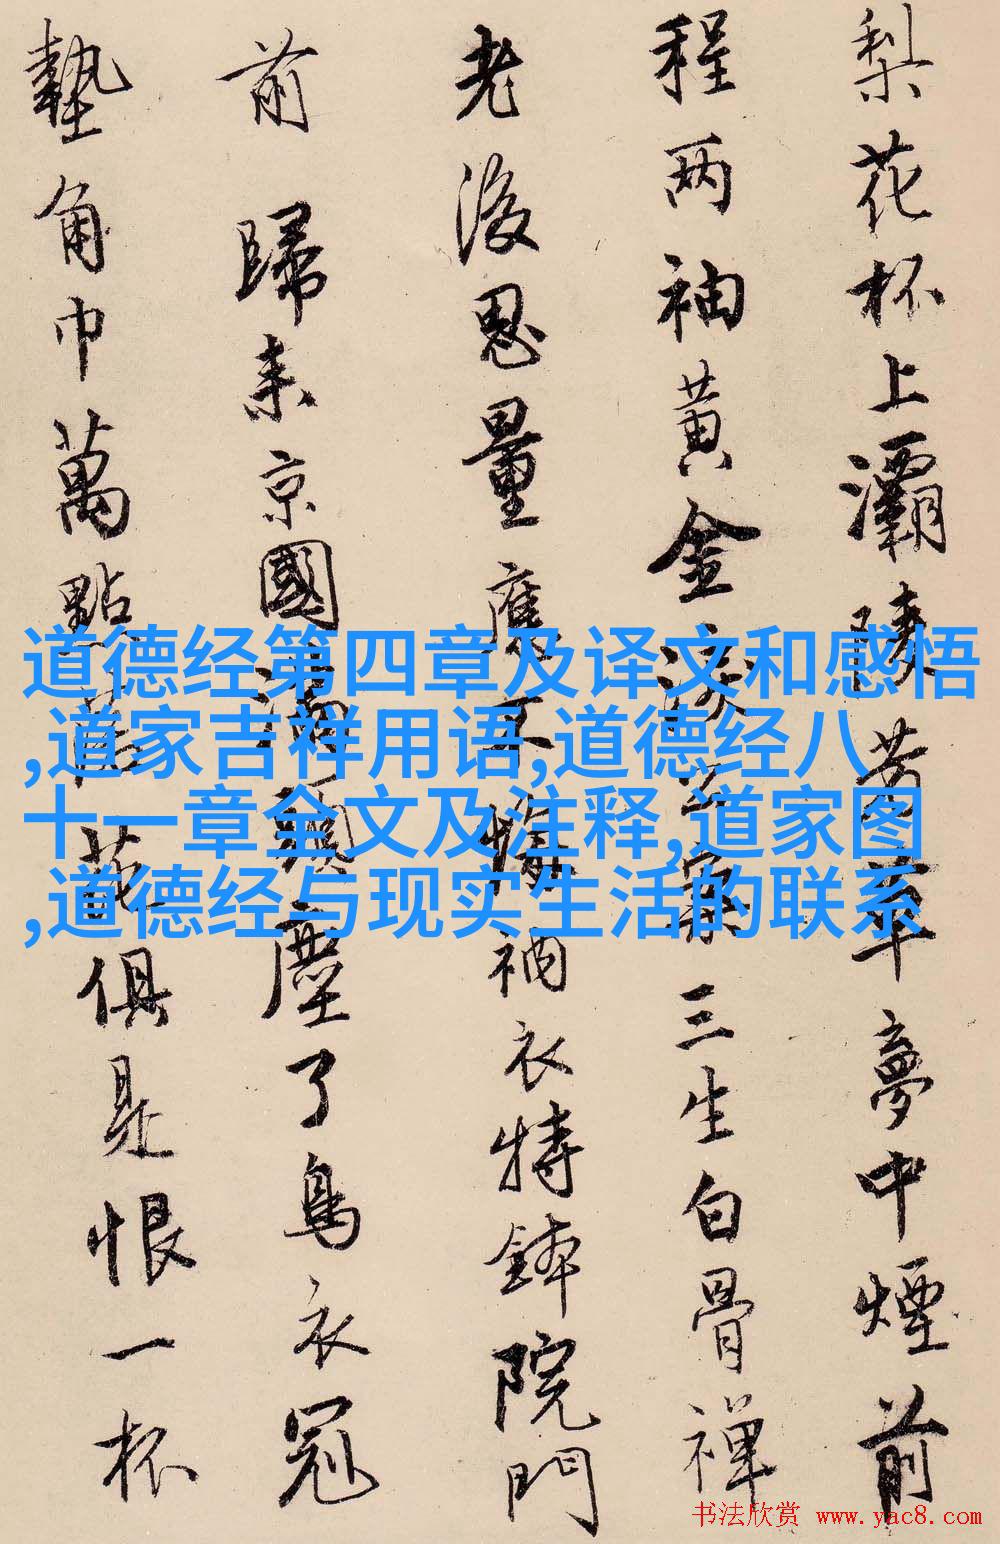 梨花杯上灞陵芳草夢中煙前
程两袖黄金淚公案三生白骨禪
老後思量應不衲衣持鉢院門
前歸来京國塵了鳥衣冠
墊角巾萬點落花俱是恨一杯
道德经第四章及译文和感悟
,道家吉祥用语,道德经八
十一章全文及注释,道家图
,道德经与现实生活的联系
书法欣赏 www.yac8.com